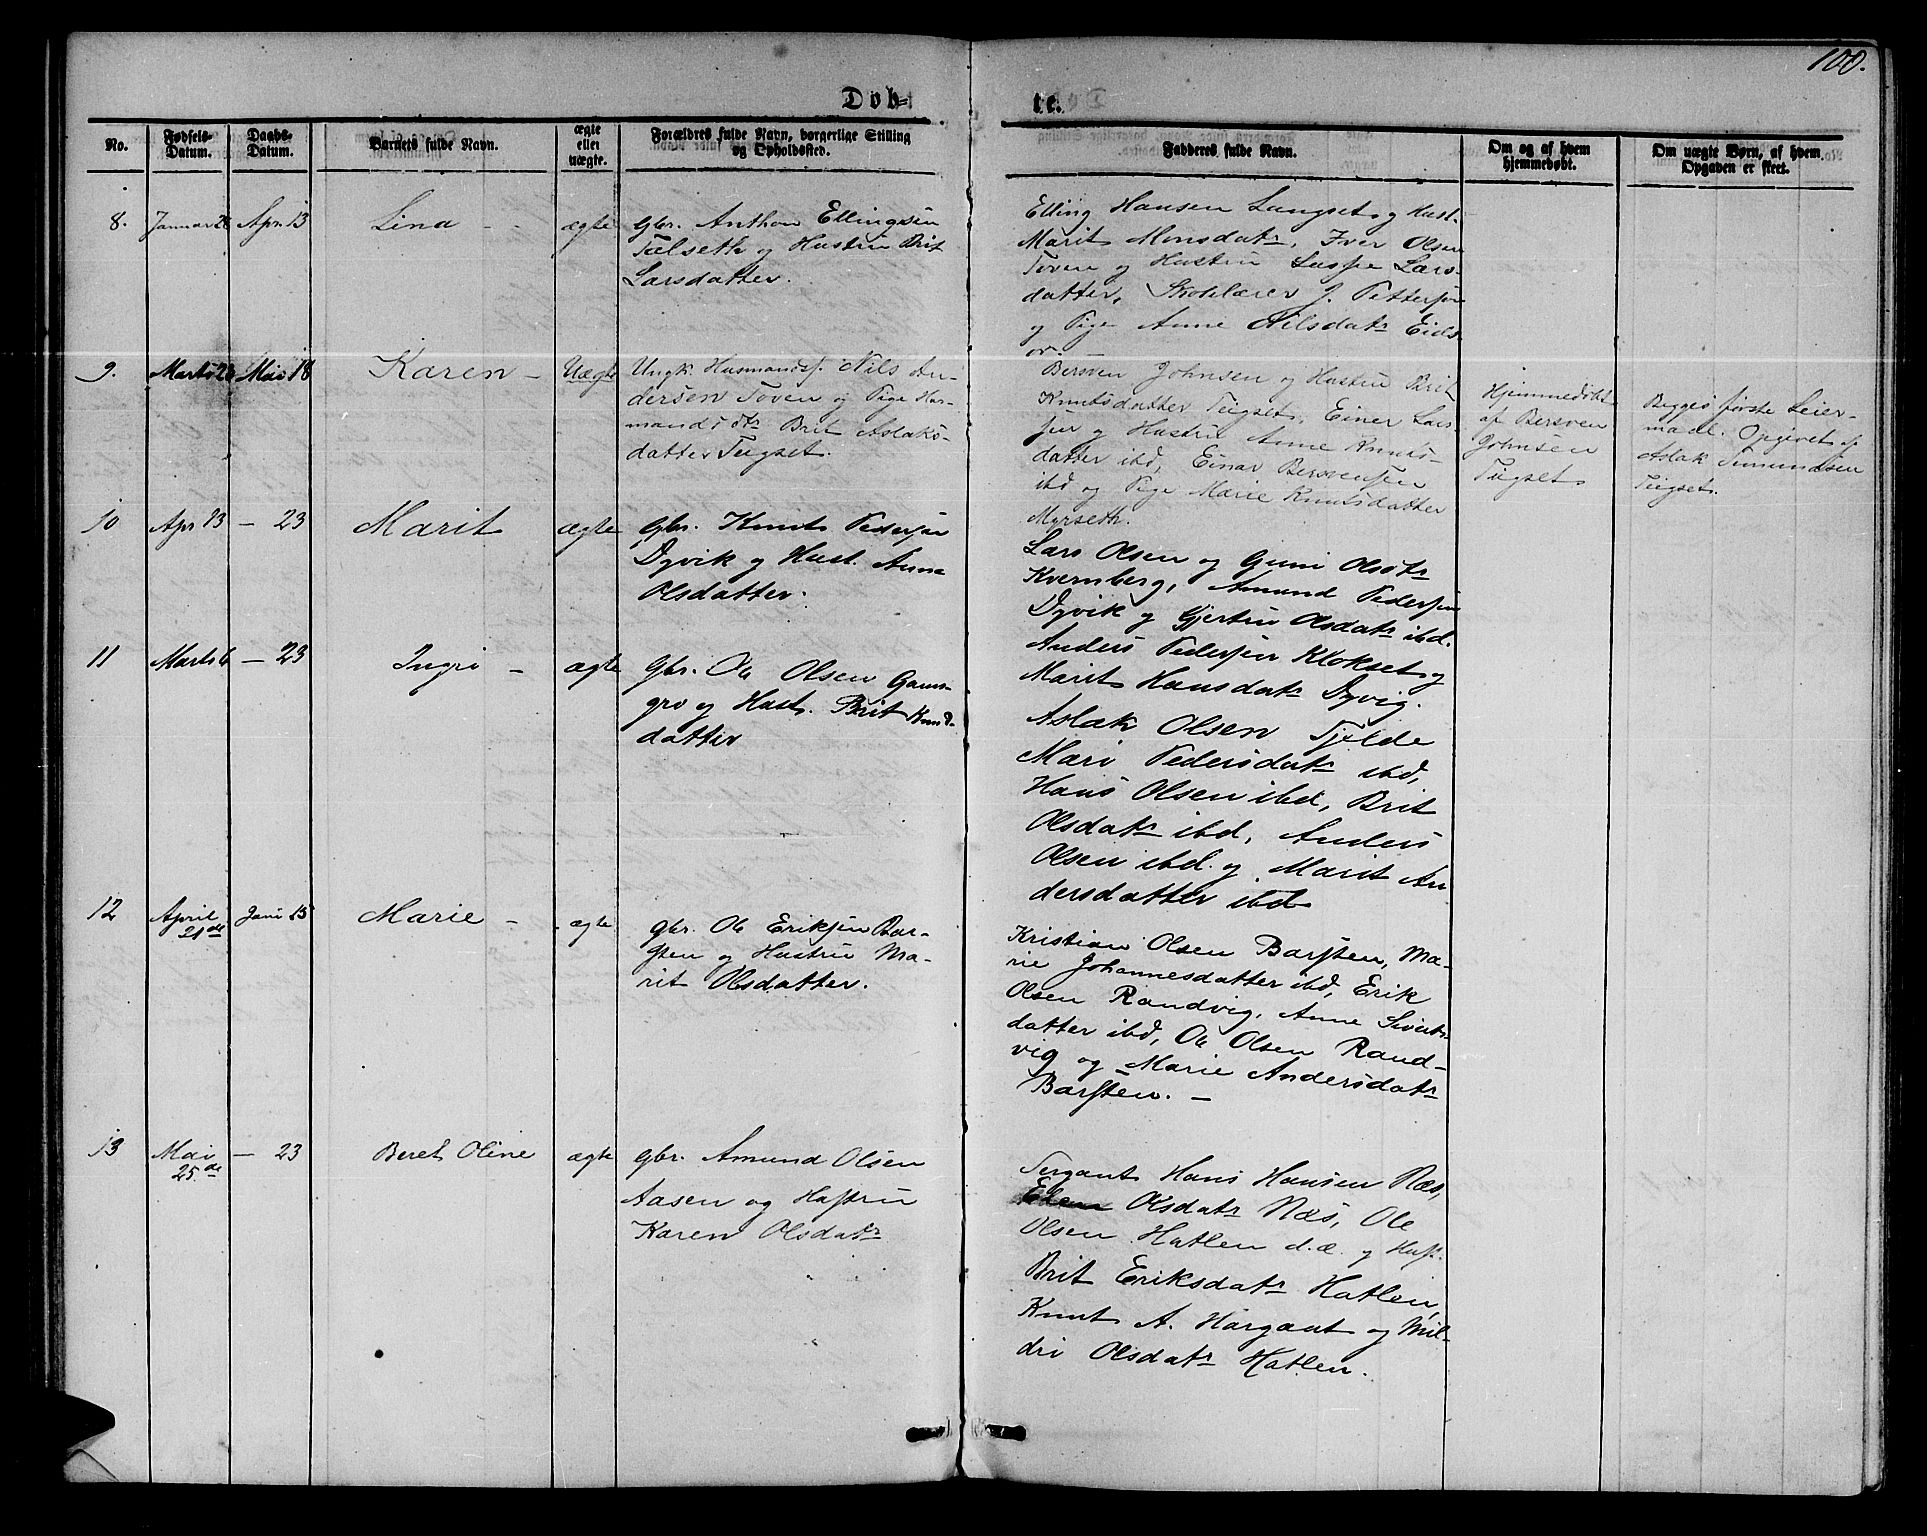 100.
Døb=
te.
No.
Fødsels-
Datum.
Daabs-
Datum.
Barnets fulde Navn.
ægte
eller
uægte.
Forældres fulde Navn, borgerlige Stilling
og Opholdssted.
Fadderes fulde Navn.
Om og af hvem
hjemmedøbt.
Om uægte Børn, af hvem
Opgaven er skeet.
8.
Januar 28
Apr. 13
Lina -
ægte
Gbr. Anthon Ellingsen
Tælseth og Hustru Brit
Larsdatter.
Elling Hansen Langset og Hust.
Marit Monsdatr, Iver Olsen
Toven og Hustru Lars-
datter, Skolelærer J. Pettersen
og Pige Anne Nilsdatr Eids-
ør. -
9.
Marts 23
Mai 18
Karen -
Uægte
Ungk. Husmands. Nils An-
dersen Toven og Pige Hus-
mandsdtr Brit Aslaks-
datter Tugset.
Bersven Johnsen og Hustru Brit
Knutsdatter Tugset, Einer Lar-
sen og Hustru Anne Knuts-
datter ibd, Einar Bersvensen
ibd og Pige Marie Knutsdatter
Myrseth.
Hjemmedøbt
af Bersven
Johnsen
Tugset
Begges første Leier-
maal. Opgivet af
Aslak
Tugset.
10
Apr 13
- 23
Marit
ægte
Gbr. Knut Pedersen
Dyvik og Hust. Anne
Olsdatter.
Lars Olsen og Guni Olsdtr
Kvernberg, Amund Pedersen
Dyvik og Gjertru Olsdatr ibd.
Anders Pedersen Klokset og
Marit Hansdatr Dyvig.
11
Marts 6
- 23
Ingri -
ægte
Gbr. Ole Olsen Gams-
gro og Hust. Brit Knuds-
datter
Aslak Olsen Tjelde
Mari Pedersdatr ibd,
Hans Olsen ibd, Brit
Olsdatr ibd, Anders
Olsen ibd. og Marit An
dersdatter ibd
12
April
21de
Juni 15
Marie -
ægte
Gbr. Ole Eriksen Bar-
sten og Hustru Ma-
rit Olsdatter.
Kristian Olsen Barsten, Ma-
rie Johannesdatter ibd, Erik
Olsen Randvig, Anne Siverts-
datter ibd, Ole Olsen Rand-
vig og Marie Andersdatr
Barsten. -
13
Mai
25de
- 23
Beret Oline
ægte
Gbr. Amund Olsen
Aasen og Hustru
Karen Olsdatr
Sergant Hans Hansen Næs,
Olsdatr Næs, Ole
Olsen Hatlen d.æ. og Hust.
Brit Eriksdatr Hatlen,
Knut A. Hargaut og Mil-
dri Olsdatr Hatlen.